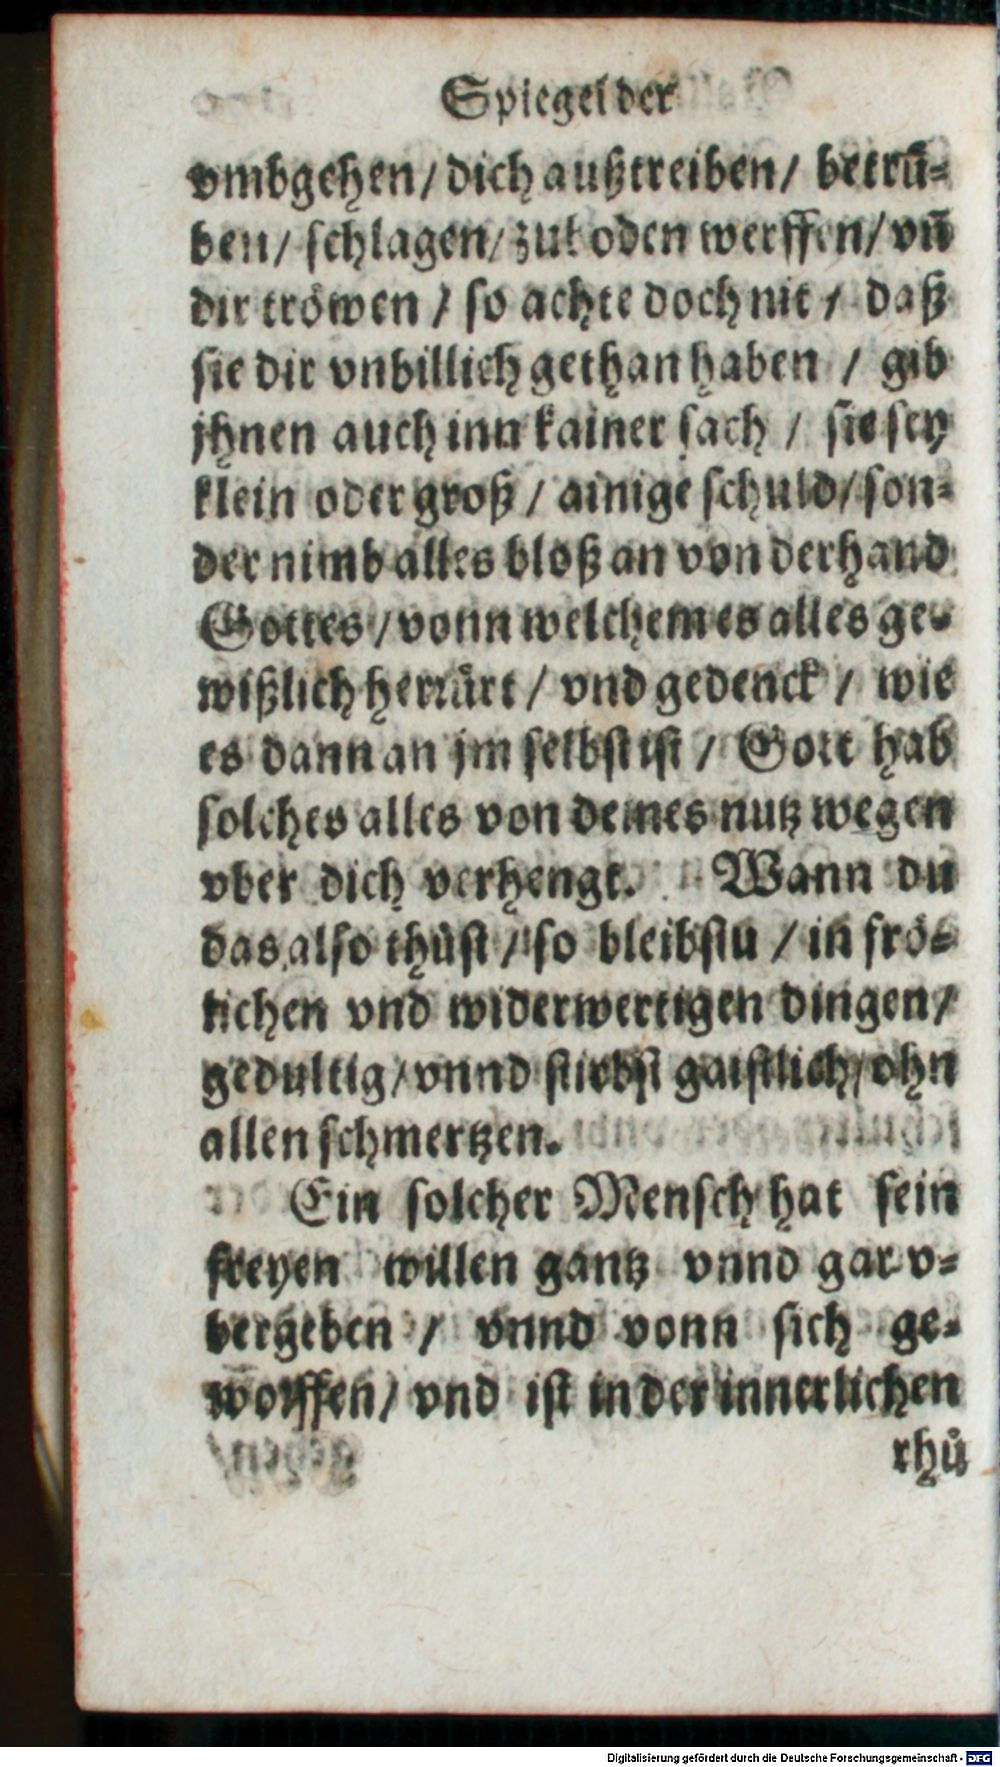 Spiegel der
vmbgehen / dich außtreiben / betrü⸗
ben / schlagen / zu boden werffen / vñ
dir tröwen / so achte doch nit / daß
sie dir vnbillich gethan haben / gib
jhnen auch inn kainer sach / sie sey
klein oder groß / ainige schuld / son⸗
der nimb alles bloß an von der hand
Gottes / vonn welchem es alles ge⸗
wißlich herrürt / vnd gedenck / wie
es dann an jm selbst ist / Gott hab
solches alles von deines nutz wegen
vber dich verhengt. Wann du
das also thůst / so bleibstu / in frö⸗
lichen vnd widerwertigen dingen /
gedultig / vnnd stirbst gaistlich / ohn
allen schmertzen.
Ein solcher Mensch hat sein
freyen willen gantz vnnd gar v⸗
bergeben / vnnd vonn sich ge⸗
worffen / vnd ist in der innerlichen
rhů
Digitalisierung gefördert durch die Deutsche Forschungsgemeinschaft - DFG